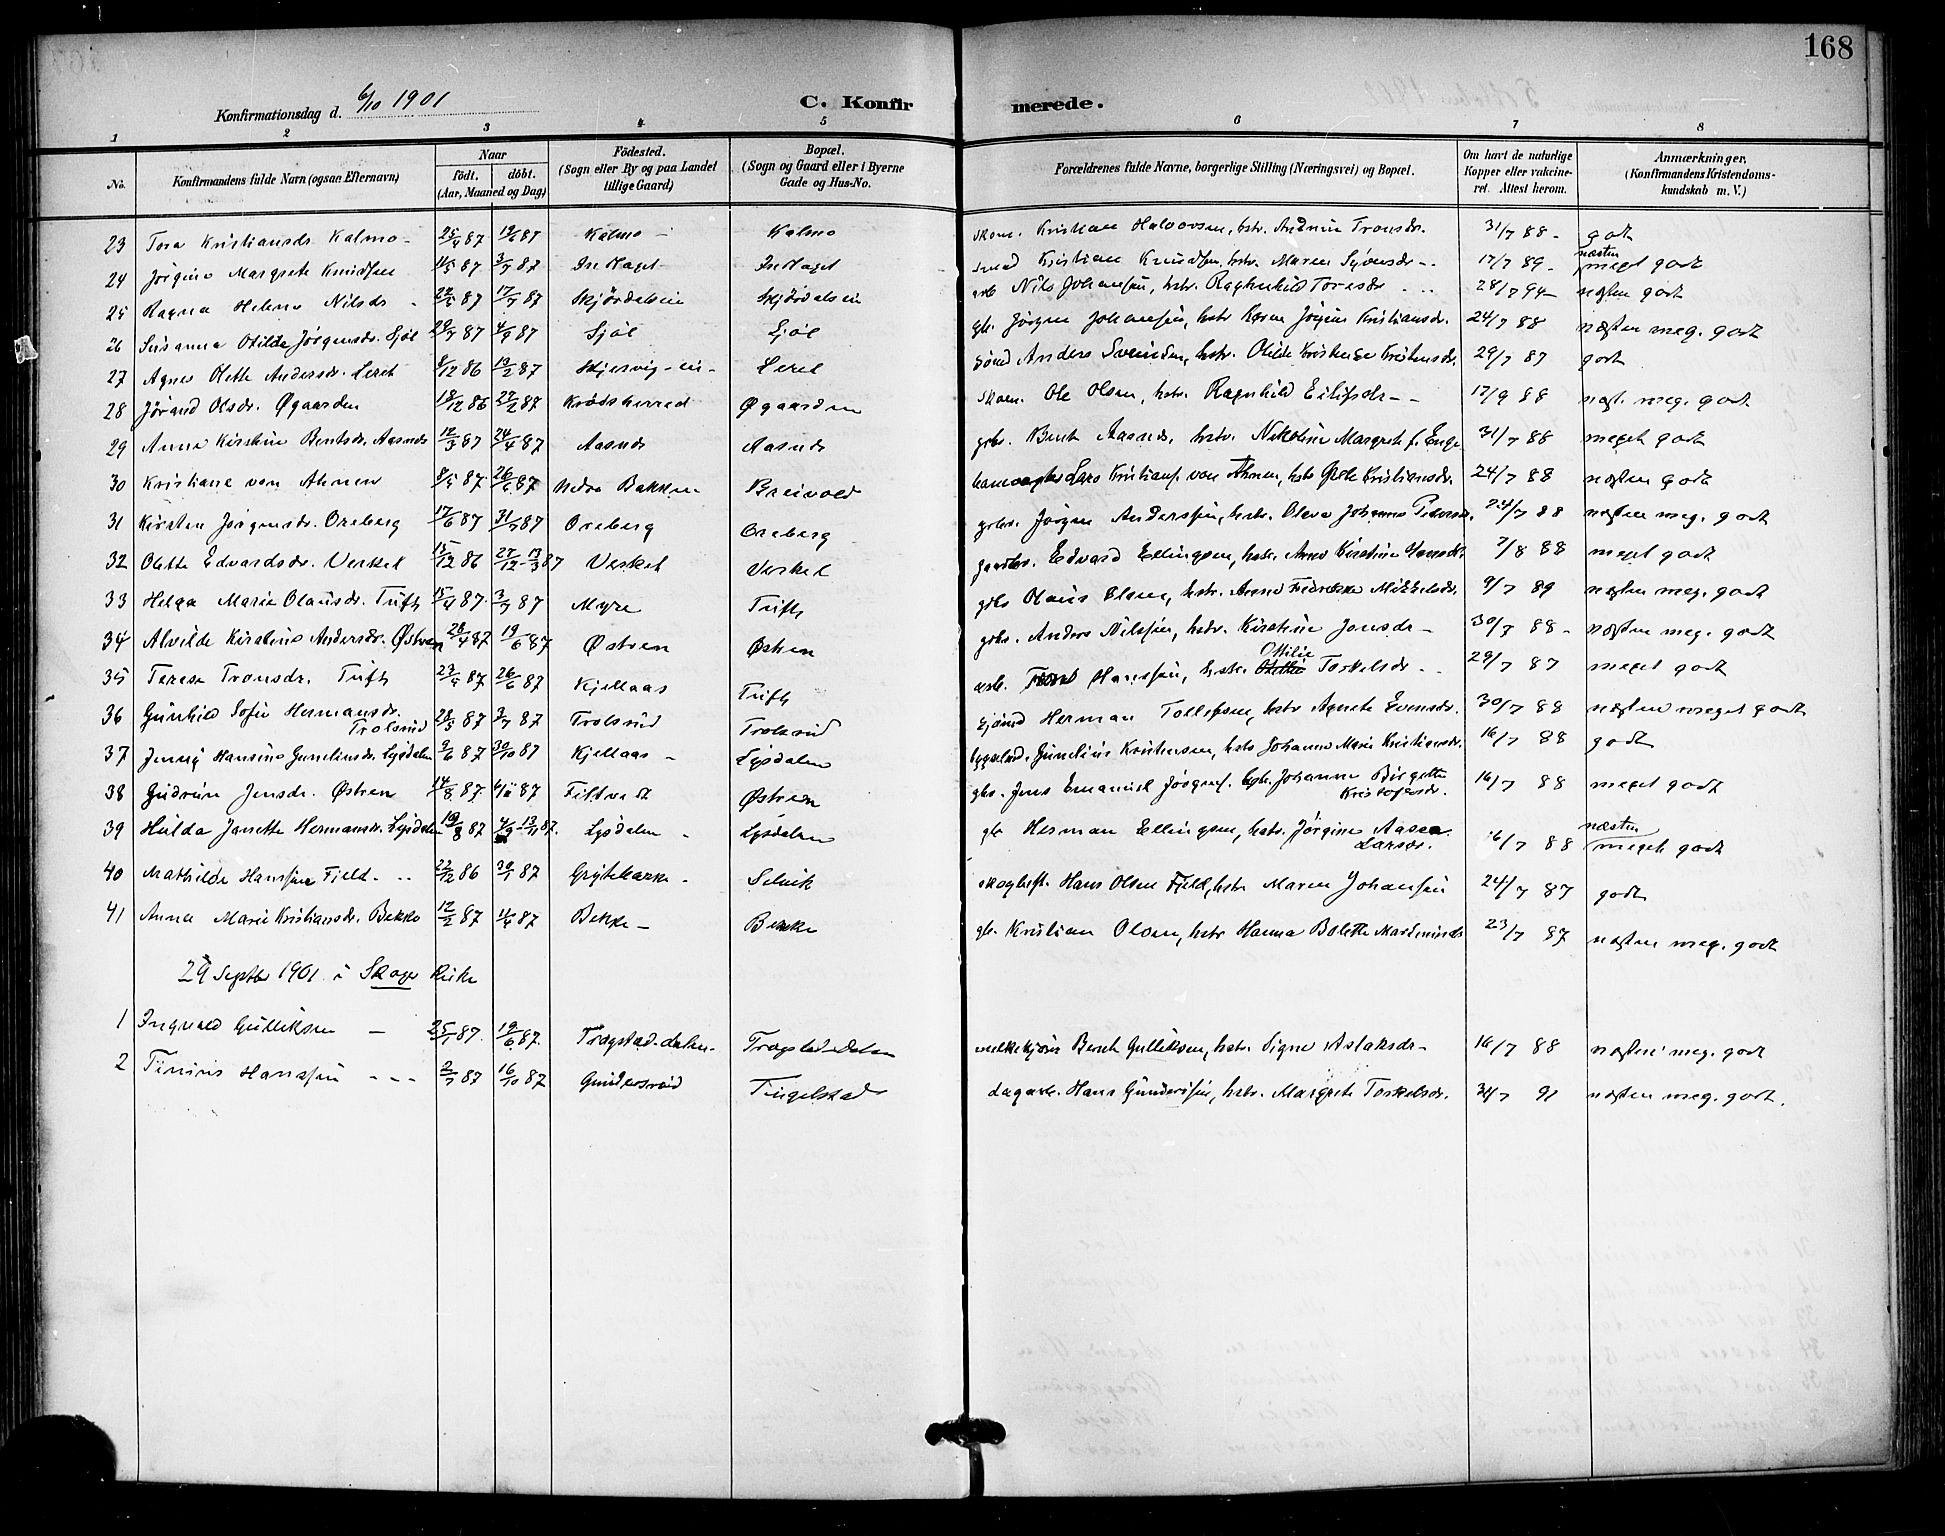 168
Konfirmationsdag d. 6/10 1901
C. Konfirmerede.
1 2 3 4 5 6 7 8
No. Konfirmandens fulde Navn (ogsaa Efternavn) Naar födt. döbt. (Aar, Maaned og Dag) Födested. (Sogn eller By og paa Landet tillige Gaard) Bopæl. (Sogn og Gaard eller i Byerne Gade og Hus-No. Forældrenes fulde Navne, borgerlige Stilling (Næringsvei) og Bopæl. Om havt de naturlige Kopper eller vakcineret. Attest herom. Anmærkninger. (Konfirmandens Kristendomskundskab m. V.)
23 Tora Kristiansdr. Kalmo - 87 19/6 87 Kalmo - Kalmo skom. Kristian Halvorsen, hstr. Tronsdr. 31/7 88 - godt
24 Jørgine Margrete Knudsen 87 3/7 87 Kristian Knudsen, hstr. Maren 17/7 89 - næsten meget godt
25 Ragna Helene Nilsdr. 87 17/7 87 Skjørdalseie Skjørdalseie arb Nils Johansen, hstr. Ragnhild Toresdr 28/7 94 - næsten godt
26 Susanna Otilde Jørgensdr. Sjøl 87 4/9 87 Sjøl Sjøl gb. Jørgen Johansen, hstr Karen Jørgine Kristiansdr. 24/7 88 næsten meg. godt
27 Agnes Olette Andersdr. Leret 8/12 86 13/2 87 Leret Anders Svendsen, hstr. Otilde Kristiansdr. 29/7 87 godt
28 Jørand Olsdr. Øgaarden 18/12 86 27/2 87 Krødsherred Øgaarden skom. Ole Olsen, hstr. Ragnhild Eilifsdr - - 17/9 88 næst. meg. godt
29 Anna Kirstine Bentsdr. Aasnes 12/3 87 24/4 87 Aasnes Aasnes gbr. Bent Aasnes, hstr. Nikoline Margrete f. Enge 31/7 88 meget godt
30 Kristiane von Ahnen 8/5 87 26/6 87 Nedre Bakken Breivold Lars Kristians. von Ahnen, hstr Kristiansdr. 24/7 88 næsten godt
31 Kirsten Jørgensdr. Oreberg 17/6 87 31/7 87 Oreberg Oreberg gbr. Jørgen Anderssen, hstr. Oleva Johanne 24/7 88 næsten meg. godt
32 Olette Edvardsdr. Verket 15/12 86 27/12 - 13/3 87 Verket Verket gaardbr. Edvard Ellingsen, hstr. Anne Kirstine Hansdr. 7/8 88 meget godt
33 Helga Marie Olausdr. Tuft 15/4 87 3/7 87 Myre Tuft gbr Olaus Olsen, hstr. Anne Fredrikke Mikkelsdr. 9/7 89 næsten meg. godt
34 Alvilde Kirstine Andersdr. Østren 28/4 87 19/6 87 Østren Østren gbr. Anders Nilssen, hstr. Kirstine Jonsdr - 30/7 88 - næsten meg. godt
35 Terese Tronsdr. Tuft 87 26/6 87 Kjellaas Tuft arb. Hanssen, hstr. Ottilie Torkelsdr - - 29/7 87 meget godt
36 Gunhild Sofie Hermansdr. Trolsrud 28/5 87 3/7 87 Trolsrud Trolsrud Herman Tollefsen, hstr Agnete Evensdr. 30/7 88 næsten meget godt
37 Jenny Hansine Gunelinsdr. Lysdalen 2/6 87 30/10 87 Kjellaas - Lysdalen Gunelius Kristensen, hstr Johanne Marie Kristiansdr. 16/7 88 godt
38 Gudrun Jensdr. Østren 14/8 87 87 Filtvedt Østren gbr. Jens Emanuel Jørgens. hstr. Johanne Birgitte Kristofersdr. 16/7 88 meget godt
39 Hulda Janette Hermansdr. Lysdalen 19/8 87 4/9 - 13/11 87. Lysdalen - Lysdalen gb Herman Ellingsen, hstr. Jørgine Aasea Larsdr. 16/7 88 næsten meget godt
40 Mathilde Hanssen Fjeld - - 22/12 86 30/1 87 Grytebakke - Selvik Hans Olsen Fjeld, hstr Maren Johansen 24/7 87 godt
41 Anna Marie Kristiansdr. Bekke 12/2 87 11/4 87 Bekke - Bekke gb. Kristian Olsen, hstr Hanna Bolette 23/7 87 næsten meg. godt
29 Septbr 1901 i Skoger Kirke
1 Ingvald Gulliksen - 25/1 87. 19/6 87. Trogstad-dalen - Trogstad-dalen Bernt Gulliksen, hstr. Signe Aslaksdr - 16/7 88 næsten meg. godt
2 Tinius Hanssen - - - 2/7 87 16/10 87 Gundersrud Tingelstad dagarb. Hans Gunderssen, hstr. Margrete Torkelsdr. 91 næsten meg. godt.